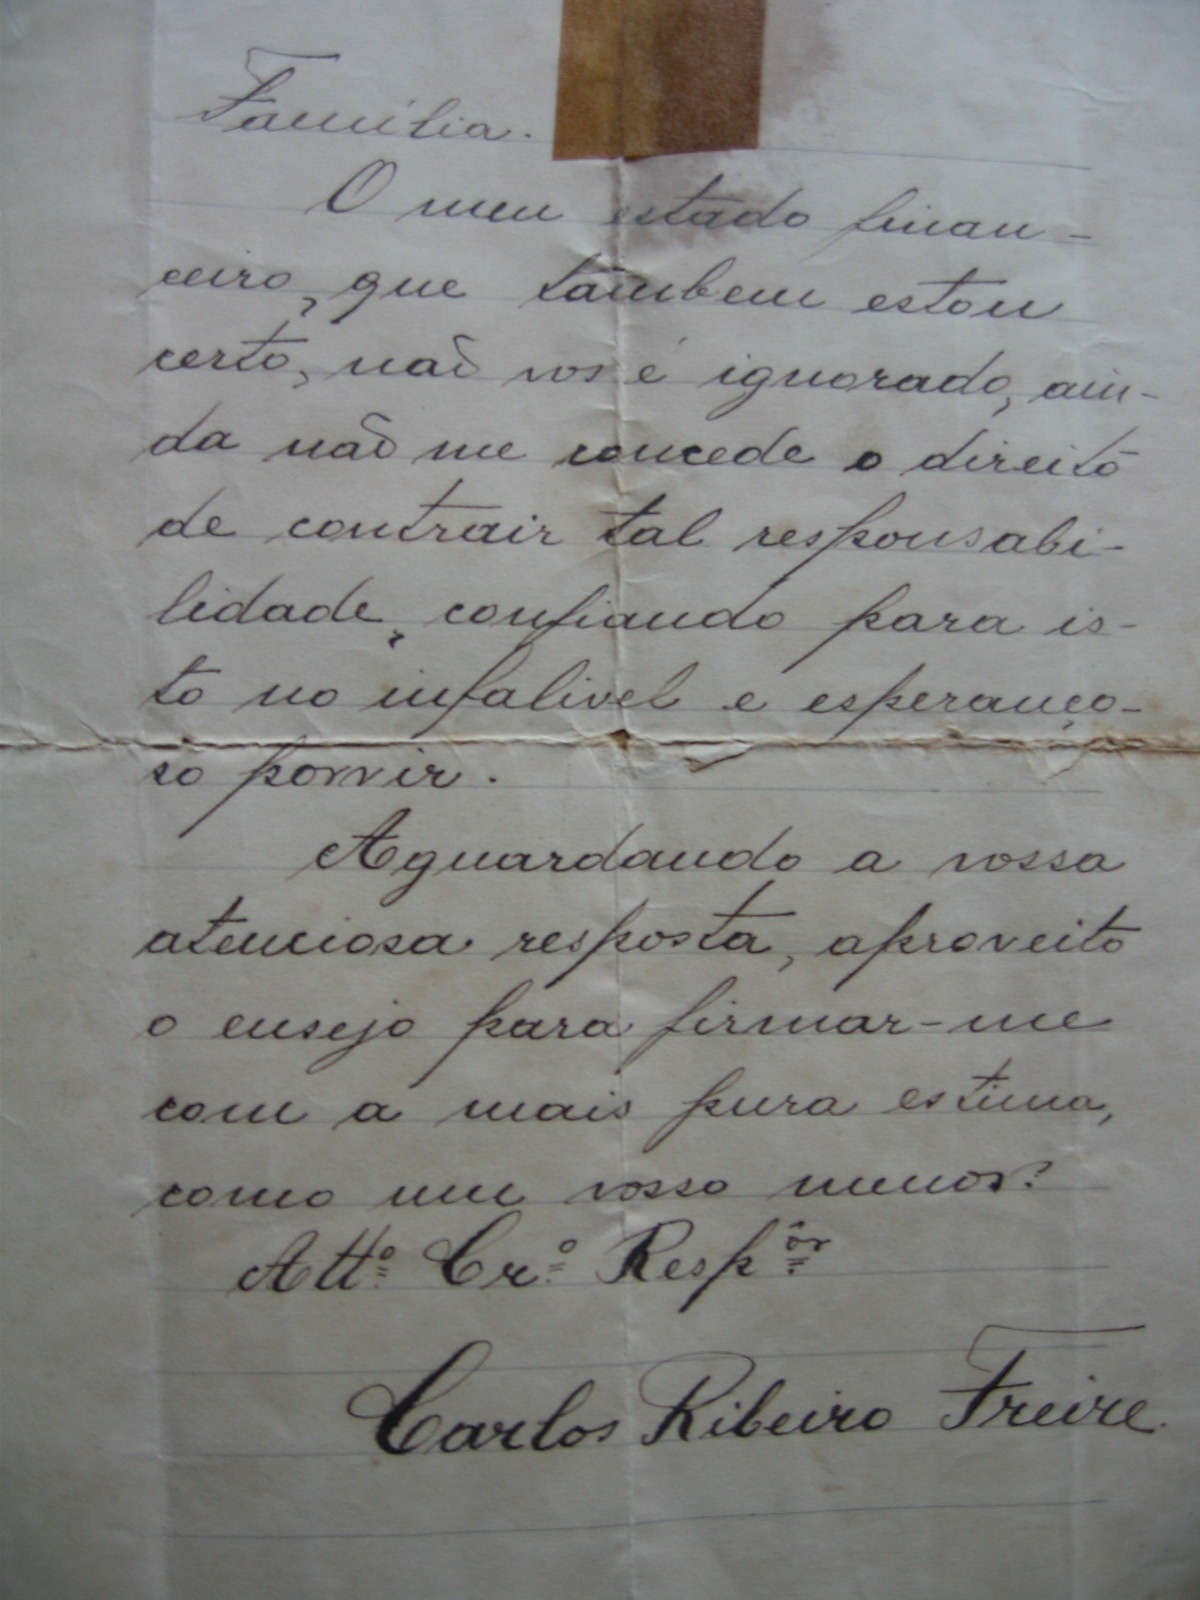 Família.
O meu estado finan-
ceiro, que tambem estou
certo, não vos é ignorado, ain-
da não me concede o direito
de contrair tal responsabi-
lidade, confiando para is-
to no infalivel e esperanço-
so porvir.
Aguardando a vossa
atenciosa resposta, aproveito
o ensejo para firmar-me
com a mais pura estima,
como um vosso menor:
Attº Crº Respôr
Carlos Ribeiro Freire.